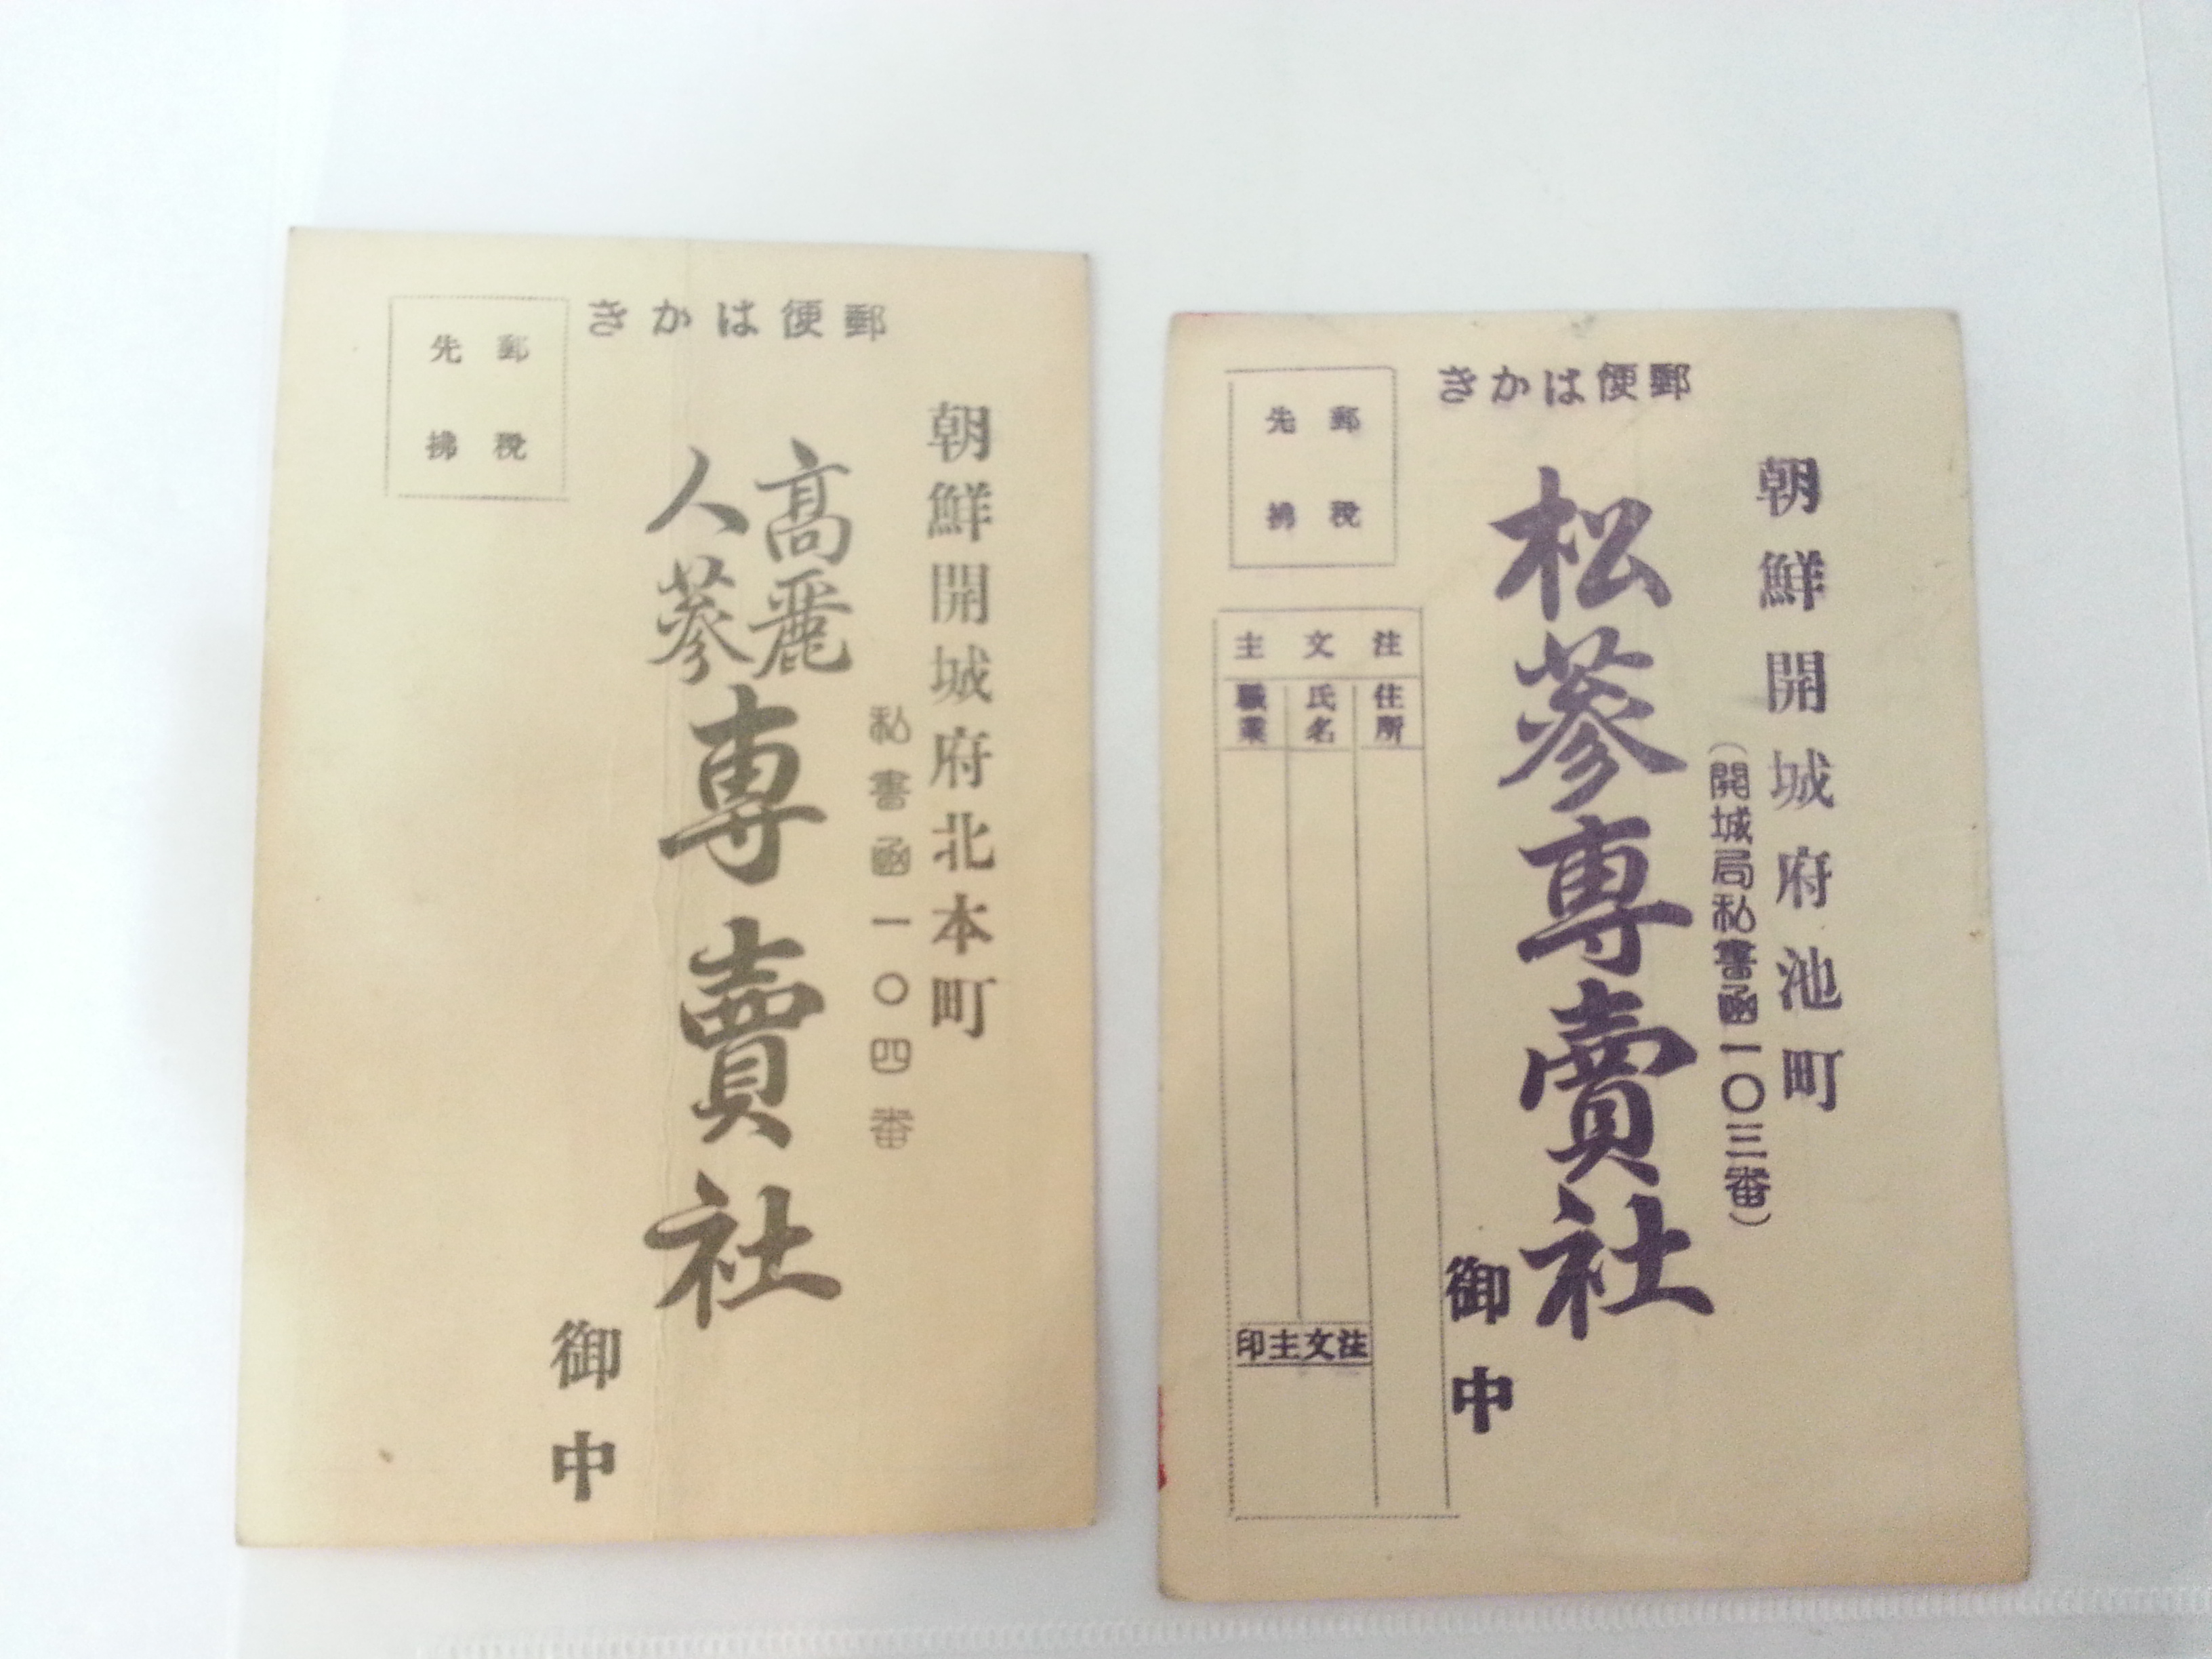 郵便はかき
郵税
先拂
朝鮮開城府北本町
私書函一〇四番
高麗
人蔘
專賣社
御中
郵便はかき
郵税
先拂
朝鮮開城府池町
(開城局私書函一〇三番)
松蔘專賣社
御中
注文主
住所
氏名
職業
注文主印